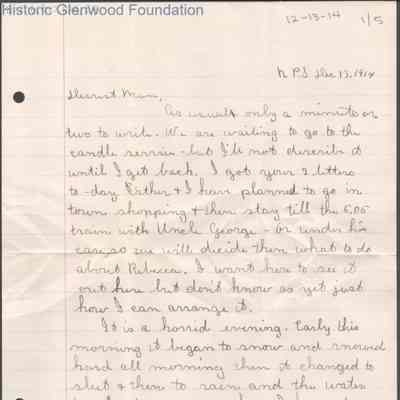 Historic Glenwood Foundation
12-13-14 1/5
N.P.S. Dec 13, 1914
Dearest Mam,
As usual only a minute or
two to write. We are waiting to go to the
candle service - but I'll not describe it
until I get back. I got your 2 letters
to-day. Esther + I have planned to go in
town shopping + then stay till the 5.05
train with Uncle George - or under his
care, so we will decide then what to do
about Rebecca. I want her to see it
out here but don't know as yet just
how I can arrange it.
It is a horrid evening. Early this
morning it began to snow and snowed
hard all morning then it changed to
sleet + then to rain and the water